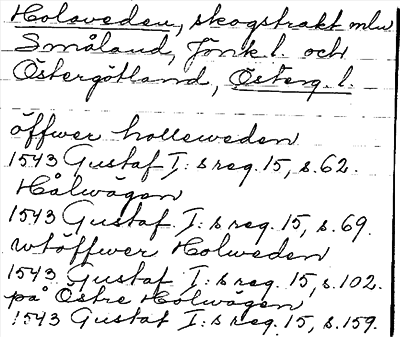 Holaveden, skogstrakt mlw
Småland, Jönk.l. och
Östergötland, Österg.l.
öffwer holleweden
1543 Gustaf I:s reg. 15, s. 62.
Hålwägen
1543 Gustaf I:s reg. 15, s. 69.
wtöffwer Holweden
1543 Gustaf I:s reg. 15, s. 102.
på Östre Holwägen
1543 Gustaf I:s reg. 15, s. 159.